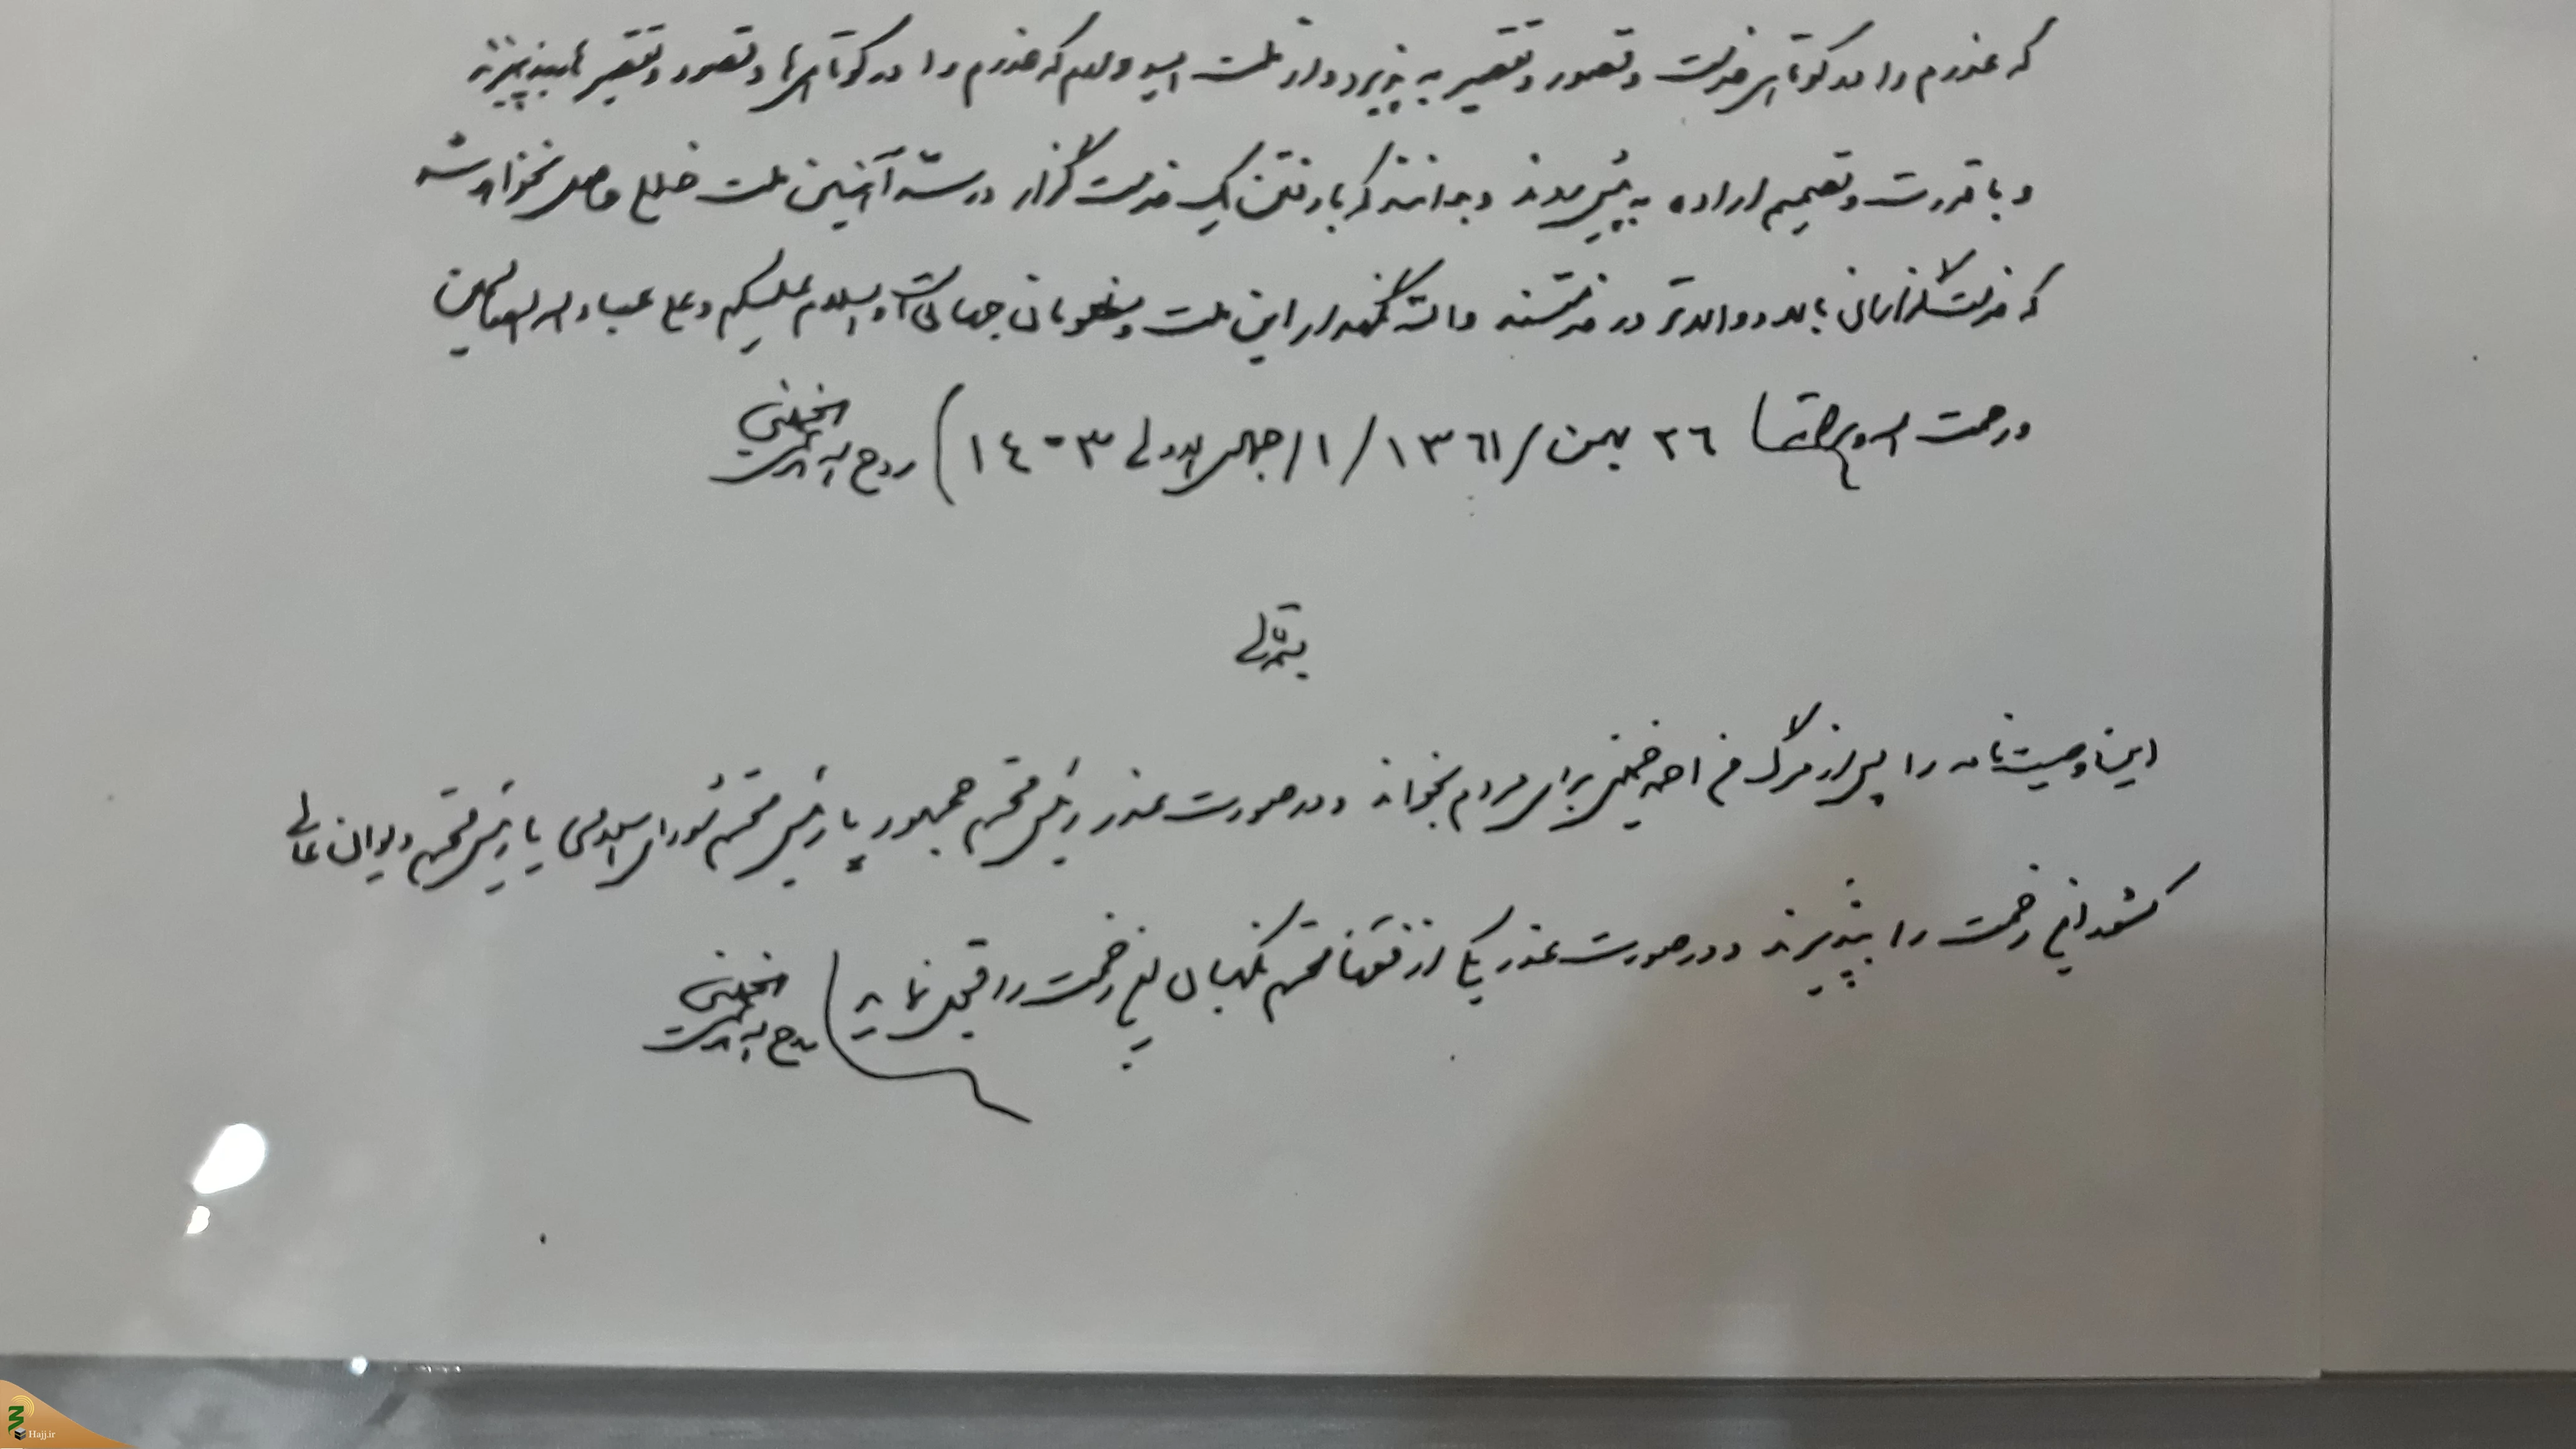 که عذرم را در کوتاهی خدمت و قصور و تقصیر بپذیرد و از ملت امیدوارم که عذرم را در کوتاهی‌ها و قصور و تقصیرها بپذیرند
و با قدرت و تصمیم اراده به پیش روند و بدانند که با رفتن یک خدمتگزار در سد آهنین ملت خللی حاصل نخواهد شد
که خدمتگزارانی بالا و والاتر در خدمتند و الله نگهدار این ملت و مظلومان جهان است و السلام علیکم و علی عباد الله الصالحین
و رحمت الله و برکاته ٢٦ بهمن / ١٣٦١ / ١ / جمادی الاولی ١٤٠٣
روح الله الموسوی الخمینی
بسمه تعالی
این وصیت‌نامه را پس از مرگ من احمد خمینی برای مردم بخواند و در صورت عذر رئیس محترم جمهور یا رئیس محترم شورای اسلامی یا رئیس محترم دیوان عالی
کشور این زحمت را بپذیرند و در صورت عذر یکی از فقها محترم نگهبان این زحمت را قبول نماید
روح الله الموسوی الخمینی
Hajj.ir